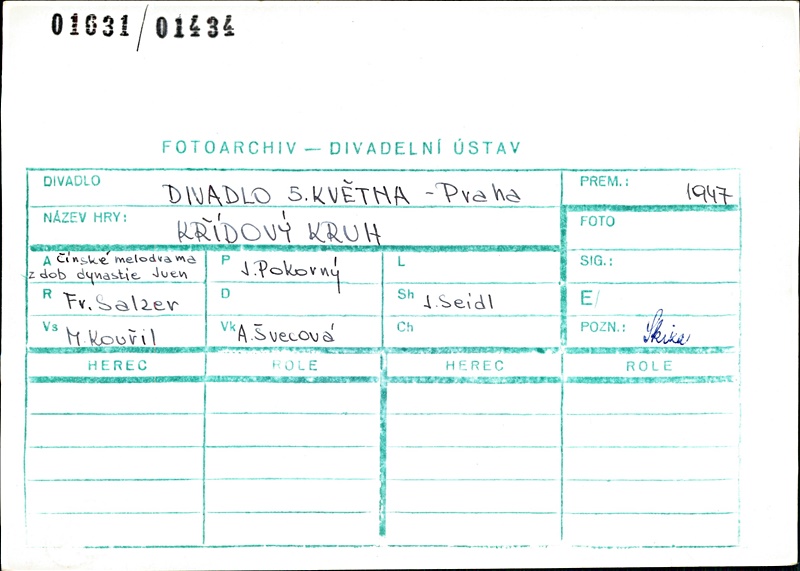 01631/01434
FOTOARCHIV — DIVADELNÍ ÚSTAV
DIVADLO DIVADLO 5. KVĚTNA - Praha
PREM.: 1947
NÁZEV HRY: KŘÍDOVÝ KRUH
FOTO
A Čínské melodrama
z dob dynastie Juen
P J. Pokorný
L
SIG.:
R Fr. Salzer
D
Sh J. Seidl
E/
Vs M. Kouřil
Vk A. Švecová
Ch
POZN.: Skica
HEREC ROLE HEREC ROLE